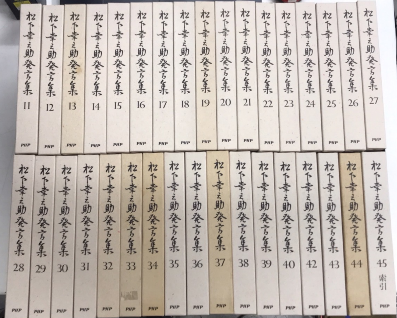 松下幸之助発言集 11 PHP
松下幸之助発言集 12 PHP
松下幸之助発言集 13 PHP
松下幸之助発言集 14 PHP
松下幸之助発言集 15 PHP
松下幸之助発言集 16 PHP
松下幸之助発言集 17 PHP
松下幸之助発言集 18 PHP
松下幸之助発言集 19 PHP
松下幸之助発言集 20 PHP
松下幸之助発言集 21 PHP
松下幸之助発言集 22 PHP
松下幸之助発言集 23 PHP
松下幸之助発言集 24 PHP
松下幸之助発言集 25 PHP
松下幸之助発言集 26 PHP
松下幸之助発言集 27 PHP
松下幸之助発言集 28 PHP
松下幸之助発言集 29 PHP
松下幸之助発言集 30 PHP
松下幸之助発言集 31 PHP
松下幸之助発言集 32 PHP
松下幸之助発言集 33 PHP
松下幸之助発言集 34 PHP
松下幸之助発言集 35 PHP
松下幸之助発言集 36 PHP
松下幸之助発言集 37 PHP
松下幸之助発言集 38 PHP
松下幸之助発言集 39 PHP
松下幸之助発言集 40 PHP
松下幸之助発言集 42 PHP
松下幸之助発言集 43 PHP
松下幸之助発言集 44 PHP
松下幸之助発言集 45 索引 PHP